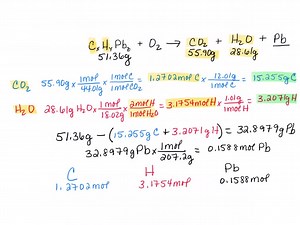 CxHyPbz + O2 → CO2 + H2O + Pb
51.36g 55.90g 28.61g
CO2 55.90g × 1mol/44.01g × 1molC/1molCO2 = 1.2702molC × 12.01g/1molC = 15.255gC
H2O 28.61g H2O × 1mol/18.02g × 2molH/1molH2O = 3.1754molH × 1.01g/1molH = 3.2071gH
51.36g - (15.255gC + 3.2071gH) = 32.8979gPb
32.8979gPb × 1mol/207.2g = 0.1588mol Pb
C H Pb
1.2702mol 3.1754mol 0.1588mol